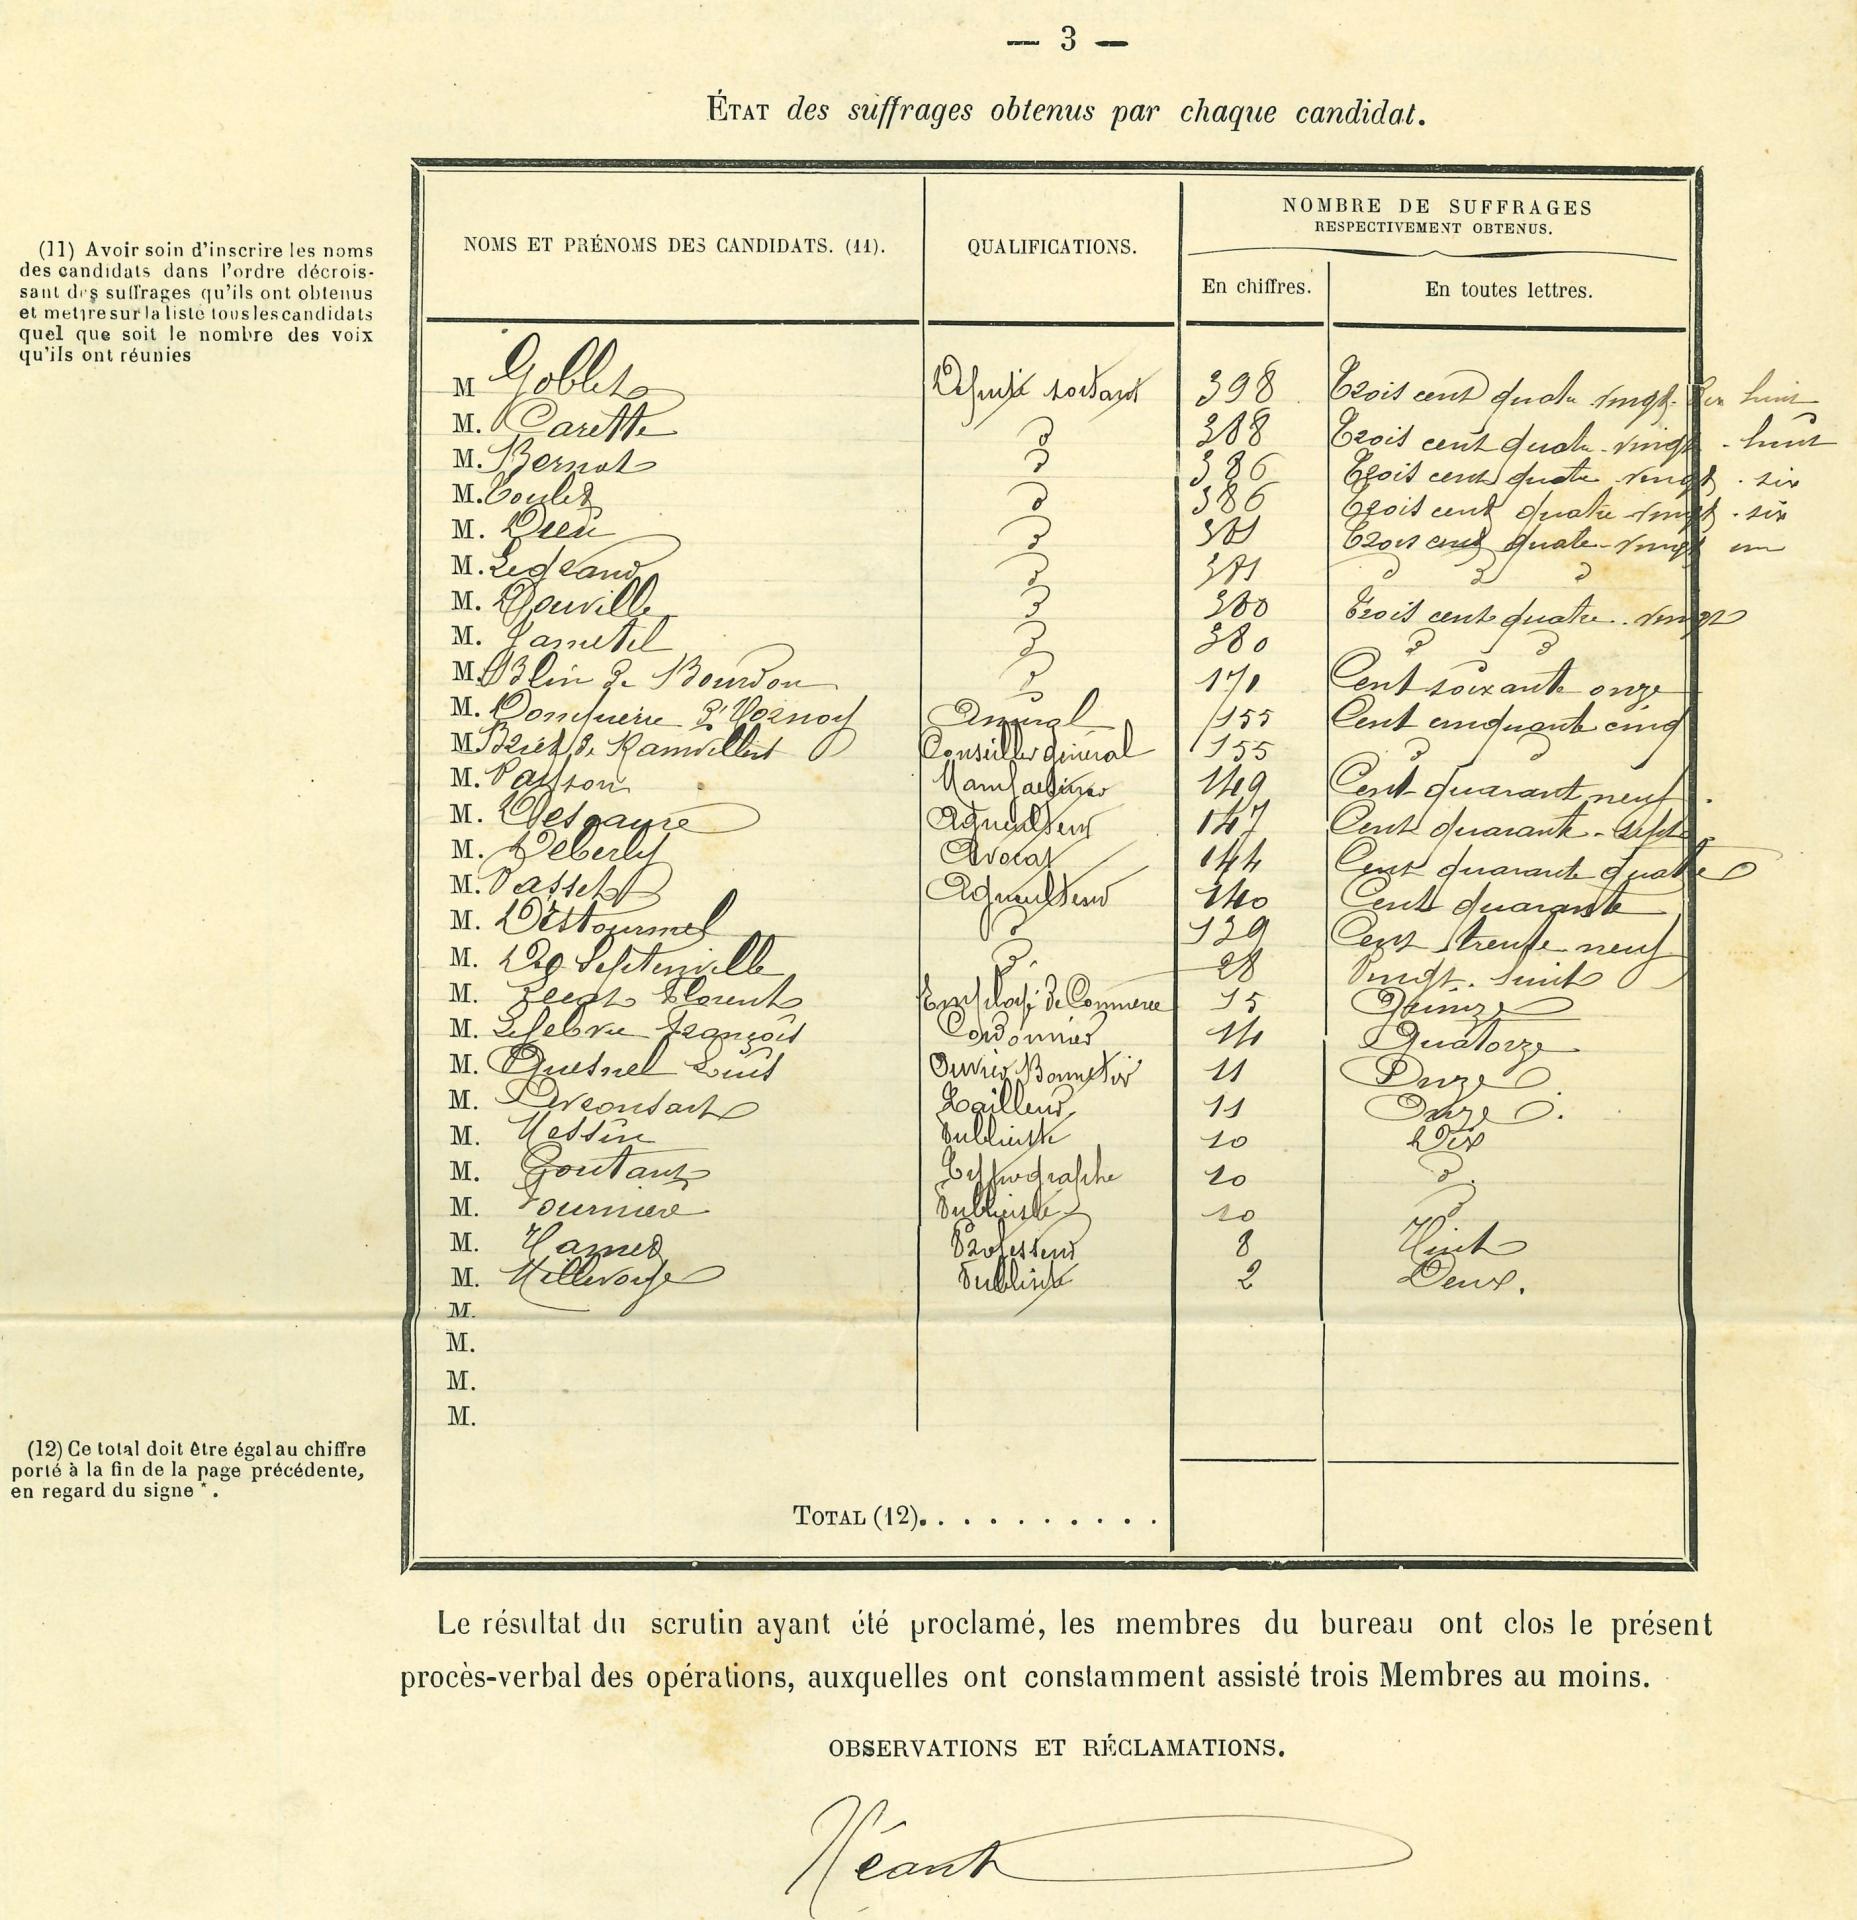 — 3 —
ÉTAT des suffrages obtenus par chaque candidat.
(11) Avoir soin d'inscrire les noms
des candidats dans l'ordre décrois-
sant des suffrages qu'ils ont obtenus
et mettre sur la liste tous les candidats
quel que soit le nombre des voix
qu'ils ont réunies
NOMS ET PRÉNOMS DES CANDIDATS. (11).
QUALIFICATIONS.
NOMBRE DE SUFFRAGES
RESPECTIVEMENT OBTENUS.
En chiffres.
En toutes lettres.
M Goblet Député sortant 398 Trois cent quatre vingt dix huit
M. Carette 388 Trois cent quatre-vingt-huit
M. Bernot 386 Trois cent quatre vingt-six
M. Coulet 386 Trois cent quatre vingt-six
M. Dieu 381 Trois cent quatre-vingt un
M. Legrand 381
M. Douville 380 Trois cent quatre-vingt
M. Jametel 380
M. Blin de Bourdon 171 Cent soixante onze
M. Domquerre d'Vornoy Amiral 155 Cent cinquante cinq
M. Briet de Rainvillers Conseiller général 155
M. 149 Cent quarant neuf.
M. Descaure Agriculteur 147 Cent quarante-sept
M. Deberly Avocat 144 Cent quarante quatre
M. Vasseh Agriculteur 140 Cent quarante
M. Destourmel 139 Cent trente neuf
M. De Septenville 28 Vingt-huit
M. Florent Employé de Commerce 15 Quinze
M. Lefebvre François Cordonnier 14 Quatorze
M. Quesnel Louis Ouvrier Bonnetier 11 Onze
M. Tailleur 11 Onze.
M. Messin Publiciste 10 Dix
M. Goutant Typographe 10
M. Fournière Publiciste 10
M. Hamet Professeur 8 Huit
M. Millevoye Publiciste 2 Deux.
M.
M.
M.
M.
(12) Ce total doit être égal au chiffre
porté à la fin de la page précédente,
en regard du signe *.
TOTAL (12). . . . . . . . . .
Le résultat du scrutin ayant été proclamé, les membres du bureau ont clos le présent
procès-verbal des opérations, auxquelles ont constamment assisté trois Membres au moins.
OBSERVATIONS ET RÉCLAMATIONS.
Néant